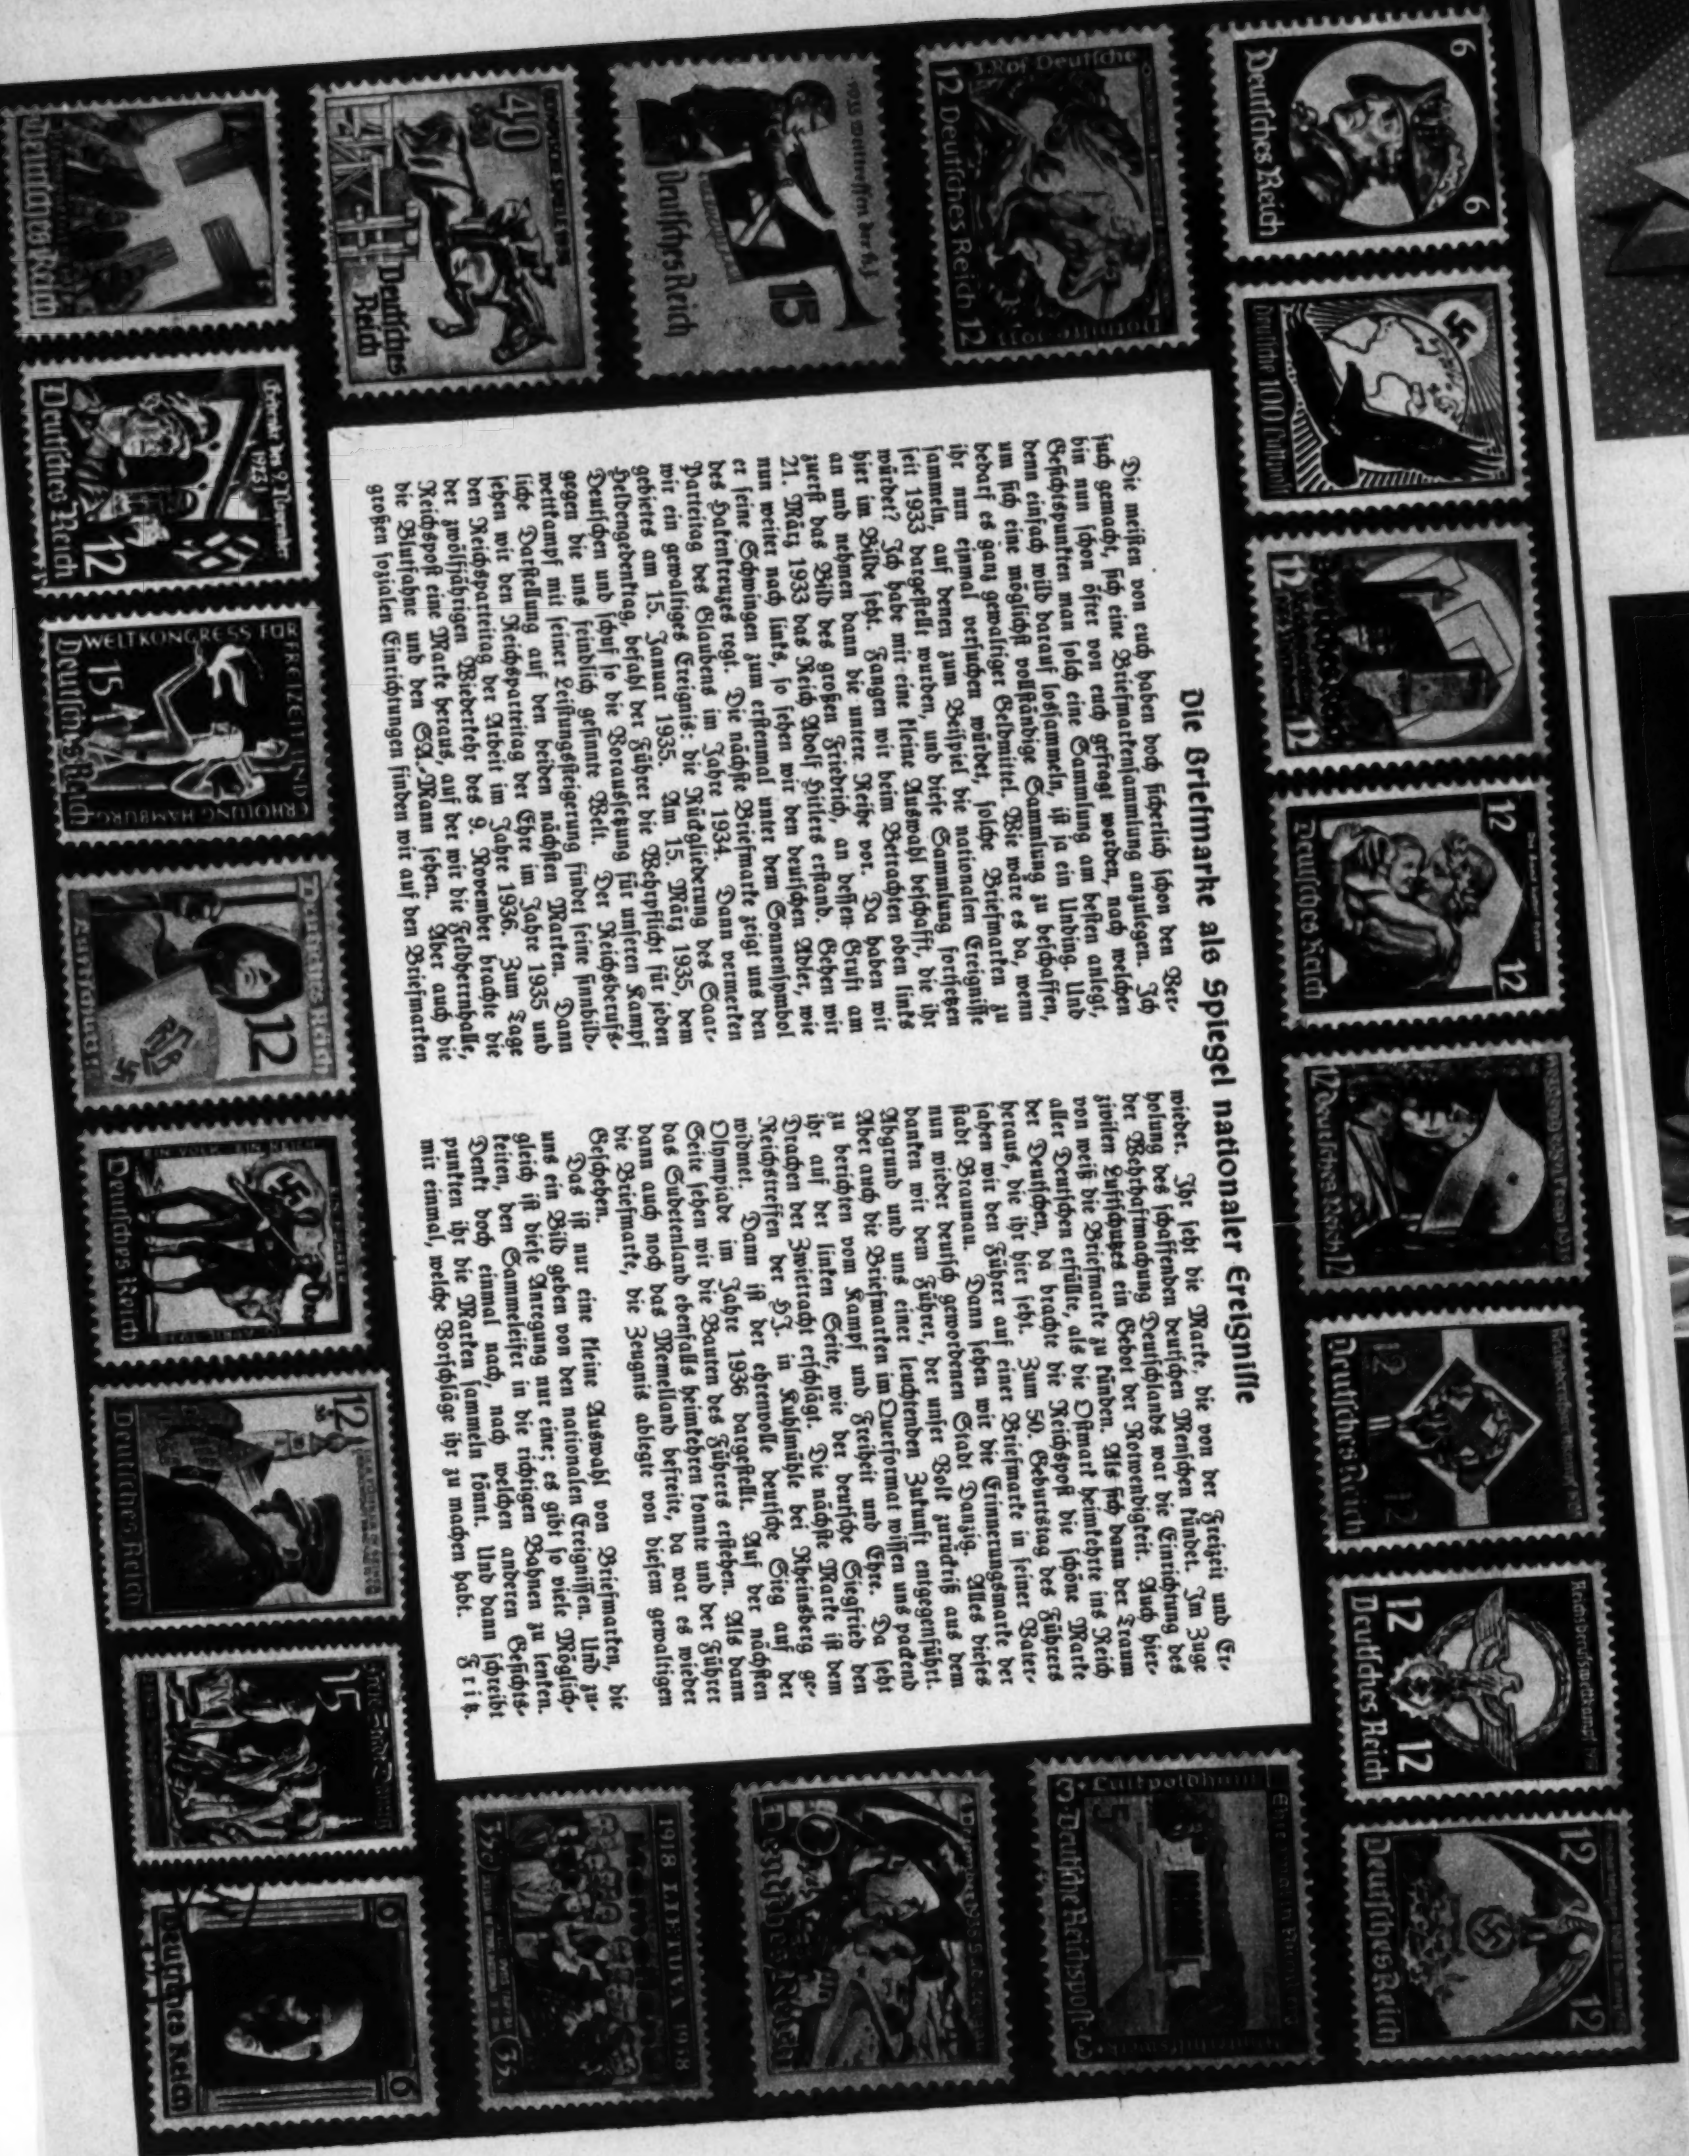 Die Briefmarke als Spiegel nationaler Ereignisse
Die meisten von euch haben doch sicherlich schon den Ver-
such gemacht, sich eine Briefmarkensammlung anzulegen. Ich
bin nun schon öfter von euch gefragt worden, nach welchen
Gesichtspunkten man solch eine Sammlung am besten anlegt,
denn einfach wild darauf lossammeln, ist ja ein Unding. Und
um sich eine möglichst vollständige Sammlung zu beschaffen,
bedarf es ganz gewaltiger Geldmittel. Wie wäre es da, wenn
ihr nun einmal versuchen würdet, solche Briefmarken zu
sammeln, auf denen zum Beispiel die nationalen Ereignisse
seit 1933 dargestellt wurden, und diese Sammlung fortsetzen
würdet? Ich habe mir eine kleine Auswahl beschafft, die ihr
hier im Bilde seht. Fangen wir beim Betrachten oben links
an und nehmen dann die untere Reihe vor. Da haben wir
zuerst das Bild des großen Friedrich, an dessen Gruft am
21. März 1933 das Reich Adolf Hitlers erstand. Gehen wir
nun weiter nach links, so sehen wir den deutschen Adler, wie
er seine Schwingen zum erstenmal unter dem Sonnensymbol
des Hakenkreuzes regt. Die nächste Briefmarke zeigt uns den
Parteitag des Glaubens im Jahre 1934. Dann vermerken
wir ein gewaltiges Ereignis: die Rückgliederung des Saar-
gebietes am 15. Januar 1935. Am 15. März 1935, dem
Heldengedenktag, befahl der Führer die Wehrpflicht für jeden
Deutschen und schuf so die Voraussetzung für unseren Kampf
gegen die uns feindlich gesinnte Welt. Der Reichsberufs-
wettkampf mit seiner Leistungssteigerung findet seine sinnbild-
liche Darstellung auf den beiden nächsten Marken. Dann
sehen wir den Reichsparteitag der Ehre im Jahre 1935 und
den Reichsparteitag der Arbeit im Jahre 1936. Zum Tage
der zwölfjährigen Wiederkehr des 9. November brachte die
Reichspost eine Marke heraus, auf der wir die Feldherrnhalle,
die Blutfahne und den SA.-Mann sehen. Aber auch die
großen sozialen Einrichtungen finden wir auf den Briefmarken
wieder. Ihr seht die Marke, die von der Freizeit und Er-
holung des schaffenden deutschen Menschen kündet. Im Zuge
der Wehrhaftmachung Deutschlands war die Einrichtung des
zivilen Luftschutzes ein Gebot der Notwendigkeit. Auch hier-
von weiß die Briefmarke zu künden. Als sich dann der Traum
aller Deutschen erfüllte, als die Ostmark heimkehrte ins Reich
der Deutschen, da brachte die Reichspost die schöne Marke
heraus, die ihr hier seht. Zum 50. Geburtstag des Führers
sahen wir den Führer auf einer Briefmarke in seiner Vater-
stadt Braunau. Dann sehen wir die Erinnerungsmarke der
nun wieder deutsch gewordenen Stadt Danzig. Alles dieses
danken wir dem Führer, der unser Volk zurückriß aus dem
Abgrund und uns einer leuchtenden Zukunft entgegenführt.
Aber auch die Briefmarken im Querformat wissen uns packend
zu berichten vom Kampf und Freiheit und Ehre. Da seht
ihr auf der linken Seite, wie der deutsche Siegfried den
Drachen der Zwietracht erschlägt. Die nächste Marke ist dem
Reichstreffen der HJ. in Kuhlmühle bei Rheinsberg ge-
widmet. Dann ist der ehrenvolle deutsche Sieg auf der
Olympiade im Jahre 1936 dargestellt. Auf der nächsten
Seite sehen wir die Bauten des Führers erstehen. Als dann
das Sudetenland ebenfalls heimkehren konnte und der Führer
dann auch noch das Memelland befreite, da war es wieder
die Briefmarke, die Zeugnis ablegte von diesem gewaltigen
Geschehen.
Das ist nur eine kleine Auswahl von Briefmarken, die
uns ein Bild geben von den nationalen Ereignissen. Und zu-
gleich ist diese Anregung nur eine; es gibt so viele Möglich-
keiten, den Sammeleifer in die richtigen Bahnen zu lenken.
Denkt doch einmal nach, nach welchen anderen Gesichts-
punkten ihr die Marken sammeln könnt. Und dann schreibt
mir einmal, welche Vorschläge ihr zu machen habt. Fritz.
6 6
Deutsches Reich
Deutsche
12 12
12 12
Deutsches Reich
12 Deutsches Reich 12
12 12
Deutsches Reich
Reichsberufswettkampf
12 12
Deutsches Reich
12 12
Deutsches Reich
Deutsche
12 Deutsches Reich 12
3 Luitpoldhain
Deutsche Reichspost
1935 Welttreffen der HJ
15
Deutsches Reich
Deutsches Reich
40
Deutsches
Reich
1918 LIETUVA 1938
35 c
Deutsches Reich
9. November
1923
12
Deutsches Reich
WELTKONGRESS FÜR FREIZEIT UND
ERHOLUNG HAMBURG
15
Deutsches Reich
Deutsches Reich
12
Luftschutz
EIN VOLK EIN REICH
6
Deutsches Reich
12
Deutsches Reich
15
6 6
Deutsches Reich